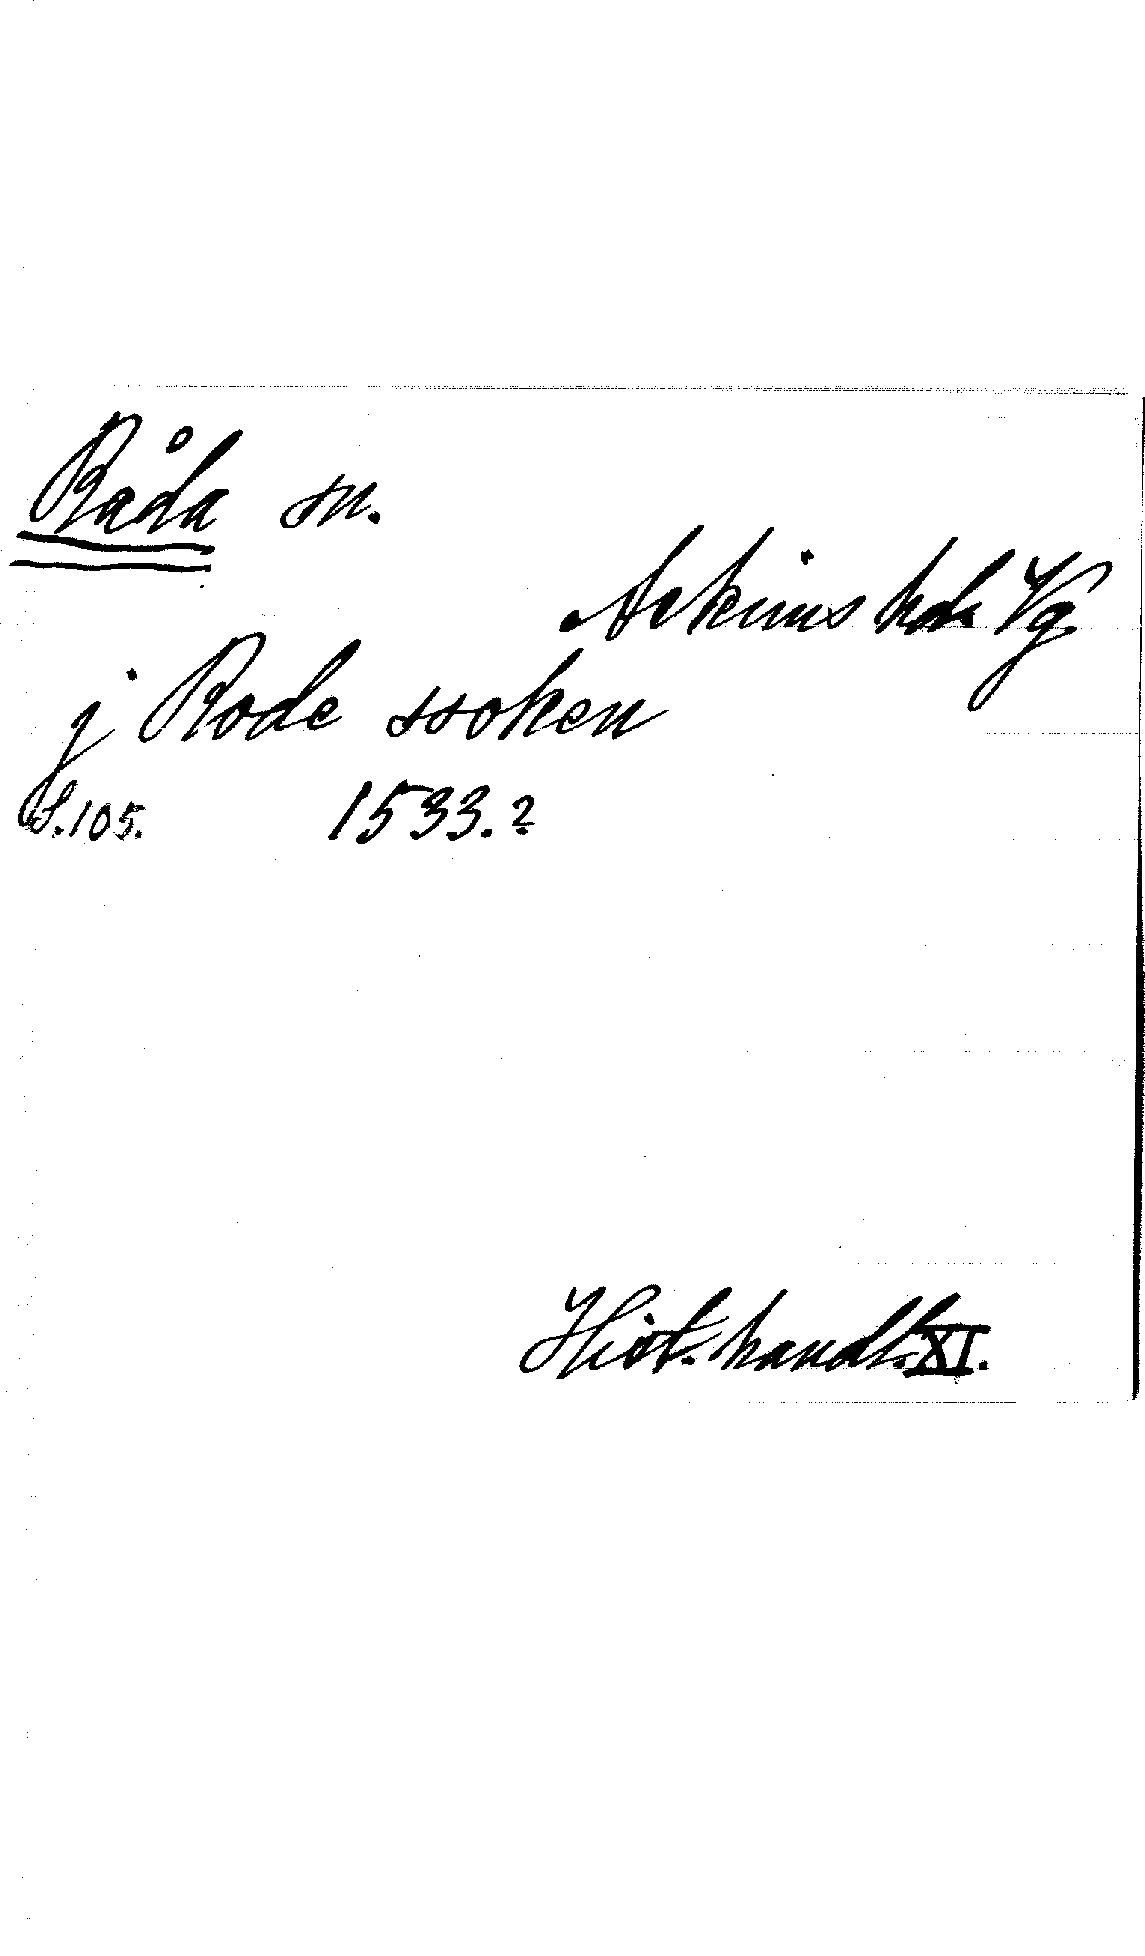 Råda sn.
Askims hd. Vg
j Rode ssoken
S. 105. 1533.?
Hist. handl. XI.